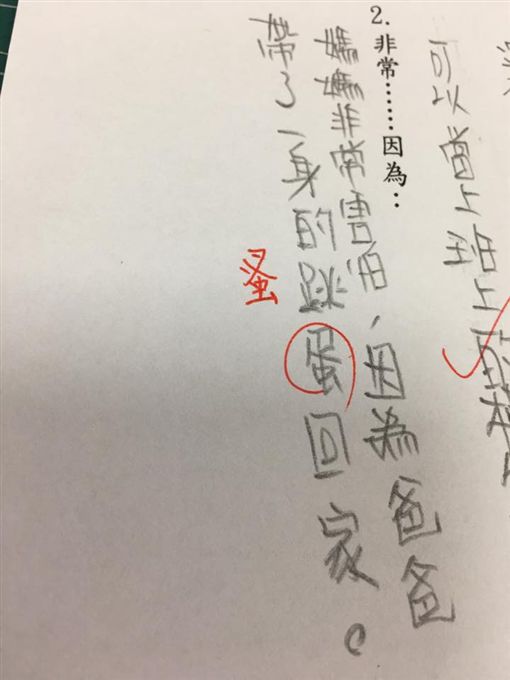 可以當上班上
2. 非常……因為…
媽媽非常害怕，因為爸爸
帶了一身的跳蛋回家。
蚤